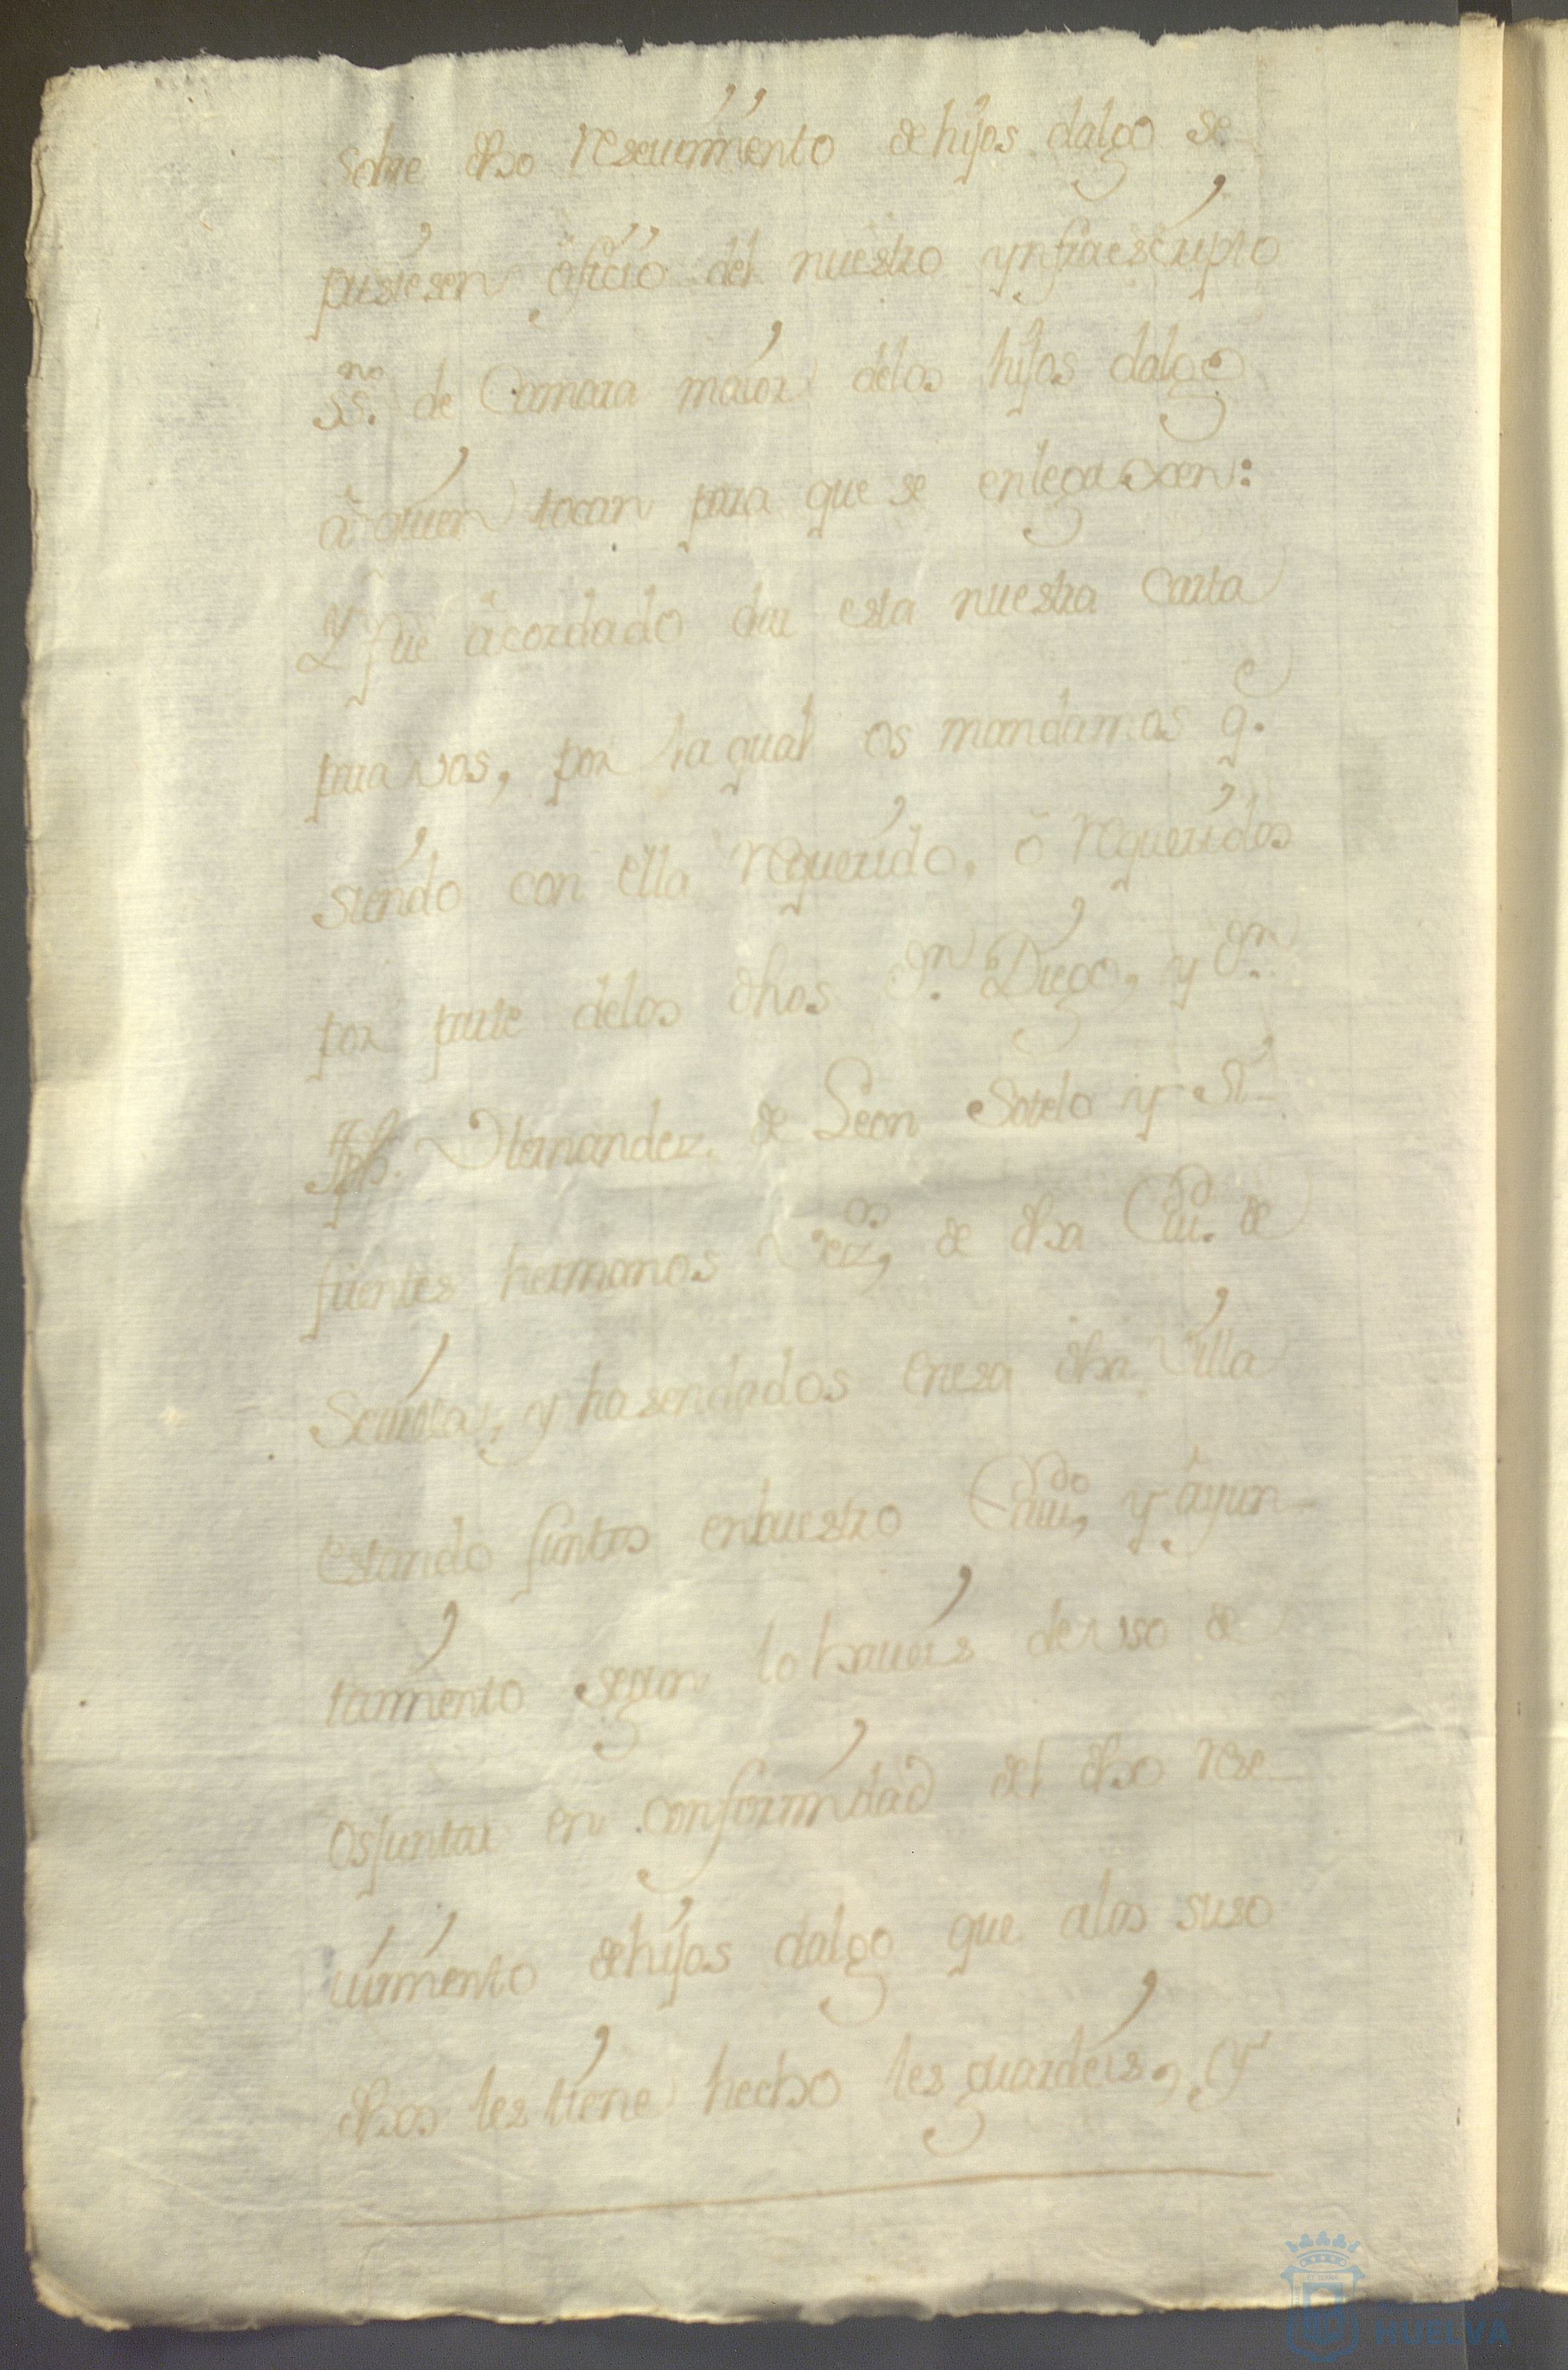 sobre dho resevimiento de hijos dalgo se
pusiesen ofiçio del nuestro ynfraescripto
ss.no de Camara maior delos hijos dalgo
â quien tocan para que se entegarxen:
Y fue âcordado dar esta nuestra Carta
para vos, por la qual os mandamos q.e
siendo con ella requerido, ô requeridos
por parte delos dhos d.n Diego, y d.n
Hernandez de Leon Sotelo y Si-
fuentes hermanos vez.os, de dha Ciu.d de
Sevilla, y hasendados enesa dha villa
estando juntos enbuestro Cavi.do, y âyun-
tamiento segun lo haveis de uso de
os juntar en conformidad del dho rese-
vimiento de hijos dalgo que alos suso
dhos les tiene hecho les guardeis, Y
HUELVA